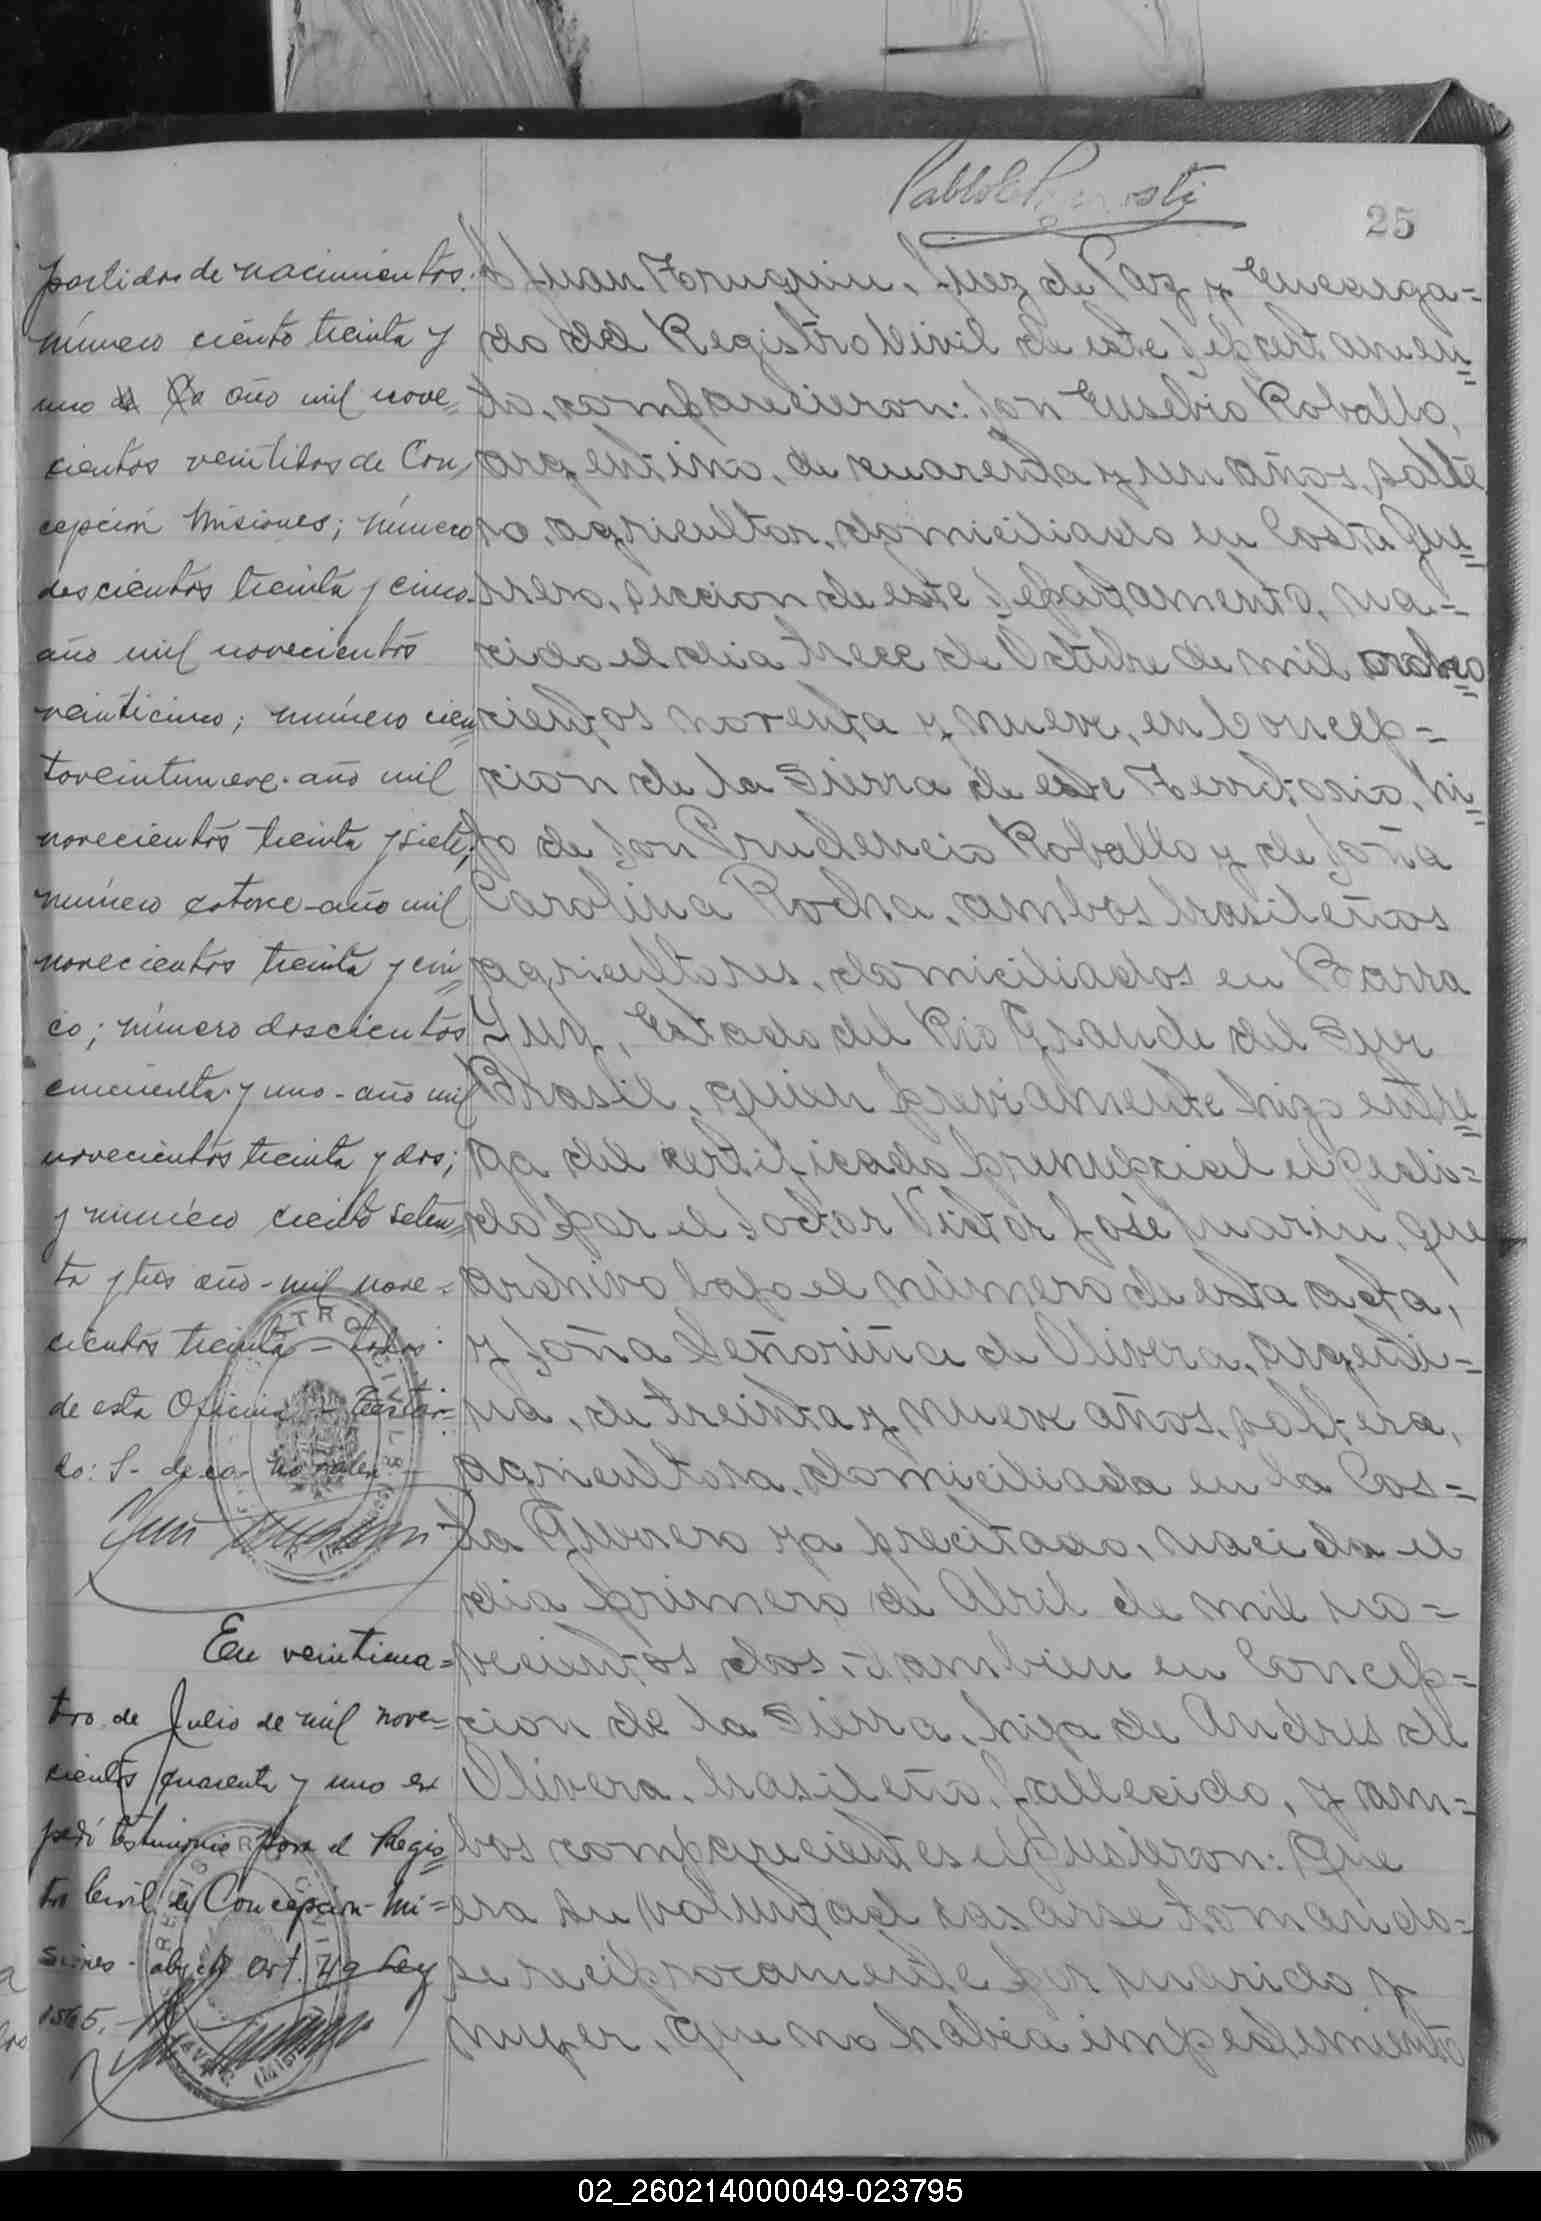 25
partidas de nacimientos:
número ciento treinta y
uno año mil nove=
cientos veintidos de Con,
cepción Misiones; número
doscientos treinta y cinco.
año mil novecientos
veinticinco; número cien=
toveintinueve. año mil
novecientos treinta y siete;
número catorce - año mil
novecientos treinta y cin=
co; número doscientos
cincuenta y uno - año mil
novecientos treinta y dos;
y número ciento seten=
ta y tres año - mil nove=
cientos treinta - todos:
de esta Oficina -
En veinticua=
tro de Julio de mil nove=
cientos cuarenta y uno ex
pedí testimonio para el Regis=
tro Civil de Concepción - Mi=
siones - art. 49 Ley
1565.
Juan Juez de Paz y Encarga=
do del Registro Civil de este Departamen=
to, comparecieron: Don Eusebio Roballo,
argentino, de cuarenta y un años, solte
ro, agricultor, domiciliado en Costa Gue=
rrero, seccion de este Departamento, na=
cido el dia trece de Octubre de mil ocho=
cientos noventa y nueve, en Concep=
cion de la Sierra de este Territorio, hi=
jo de Don Prudencio Roballo y de Doña
Carolina Rocha, ambos brasileños
agricultores, domiciliados en Barra
Estado del Rio Grande del Sur
Brasil, quien previamente hizo entre=
ga del certificado prenupcial expedi=
do por el Doctor Victor José Marin, que
archivo bajo el número de esta acta,
y Doña Señoriña de Olivera, argenti=
na, de treinta y nueve años, soltera,
agricultora, domiciliada en la Cos=
ta Guerrero ya precitado, nacida el
dia primero de Abril de mil no=
vecientos dos, tambien en Concep=
cion de la Sierra, hija de Andres de
Olivera, brasileño, fallecido, y am=
bos comparecientes expusieron: Que
era su voluntad casarse tomando=
se reciprocamente por marido y
mujer, que no habia impedimento
REGISTRO CIVIL
02_260214000049-023795